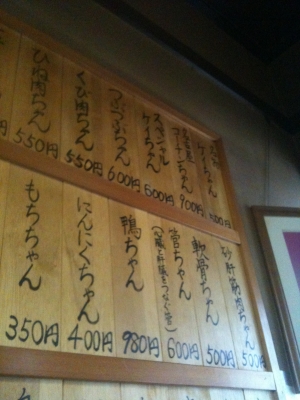 ケイちゃん
名古屋コーチンちゃん 900円
スペシャルケイちゃん 600円
つぶつぶちゃん 600円
くび肉ちゃん 550円
ひね肉ちゃん 550円
砂肝筋肉ちゃん 500円
軟骨ちゃん 500円
管ちゃん (心臓と肝臓をつなぐ管) 600円
鴨ちゃん 980円
にんにくちゃん 400円
もちちゃん 350円